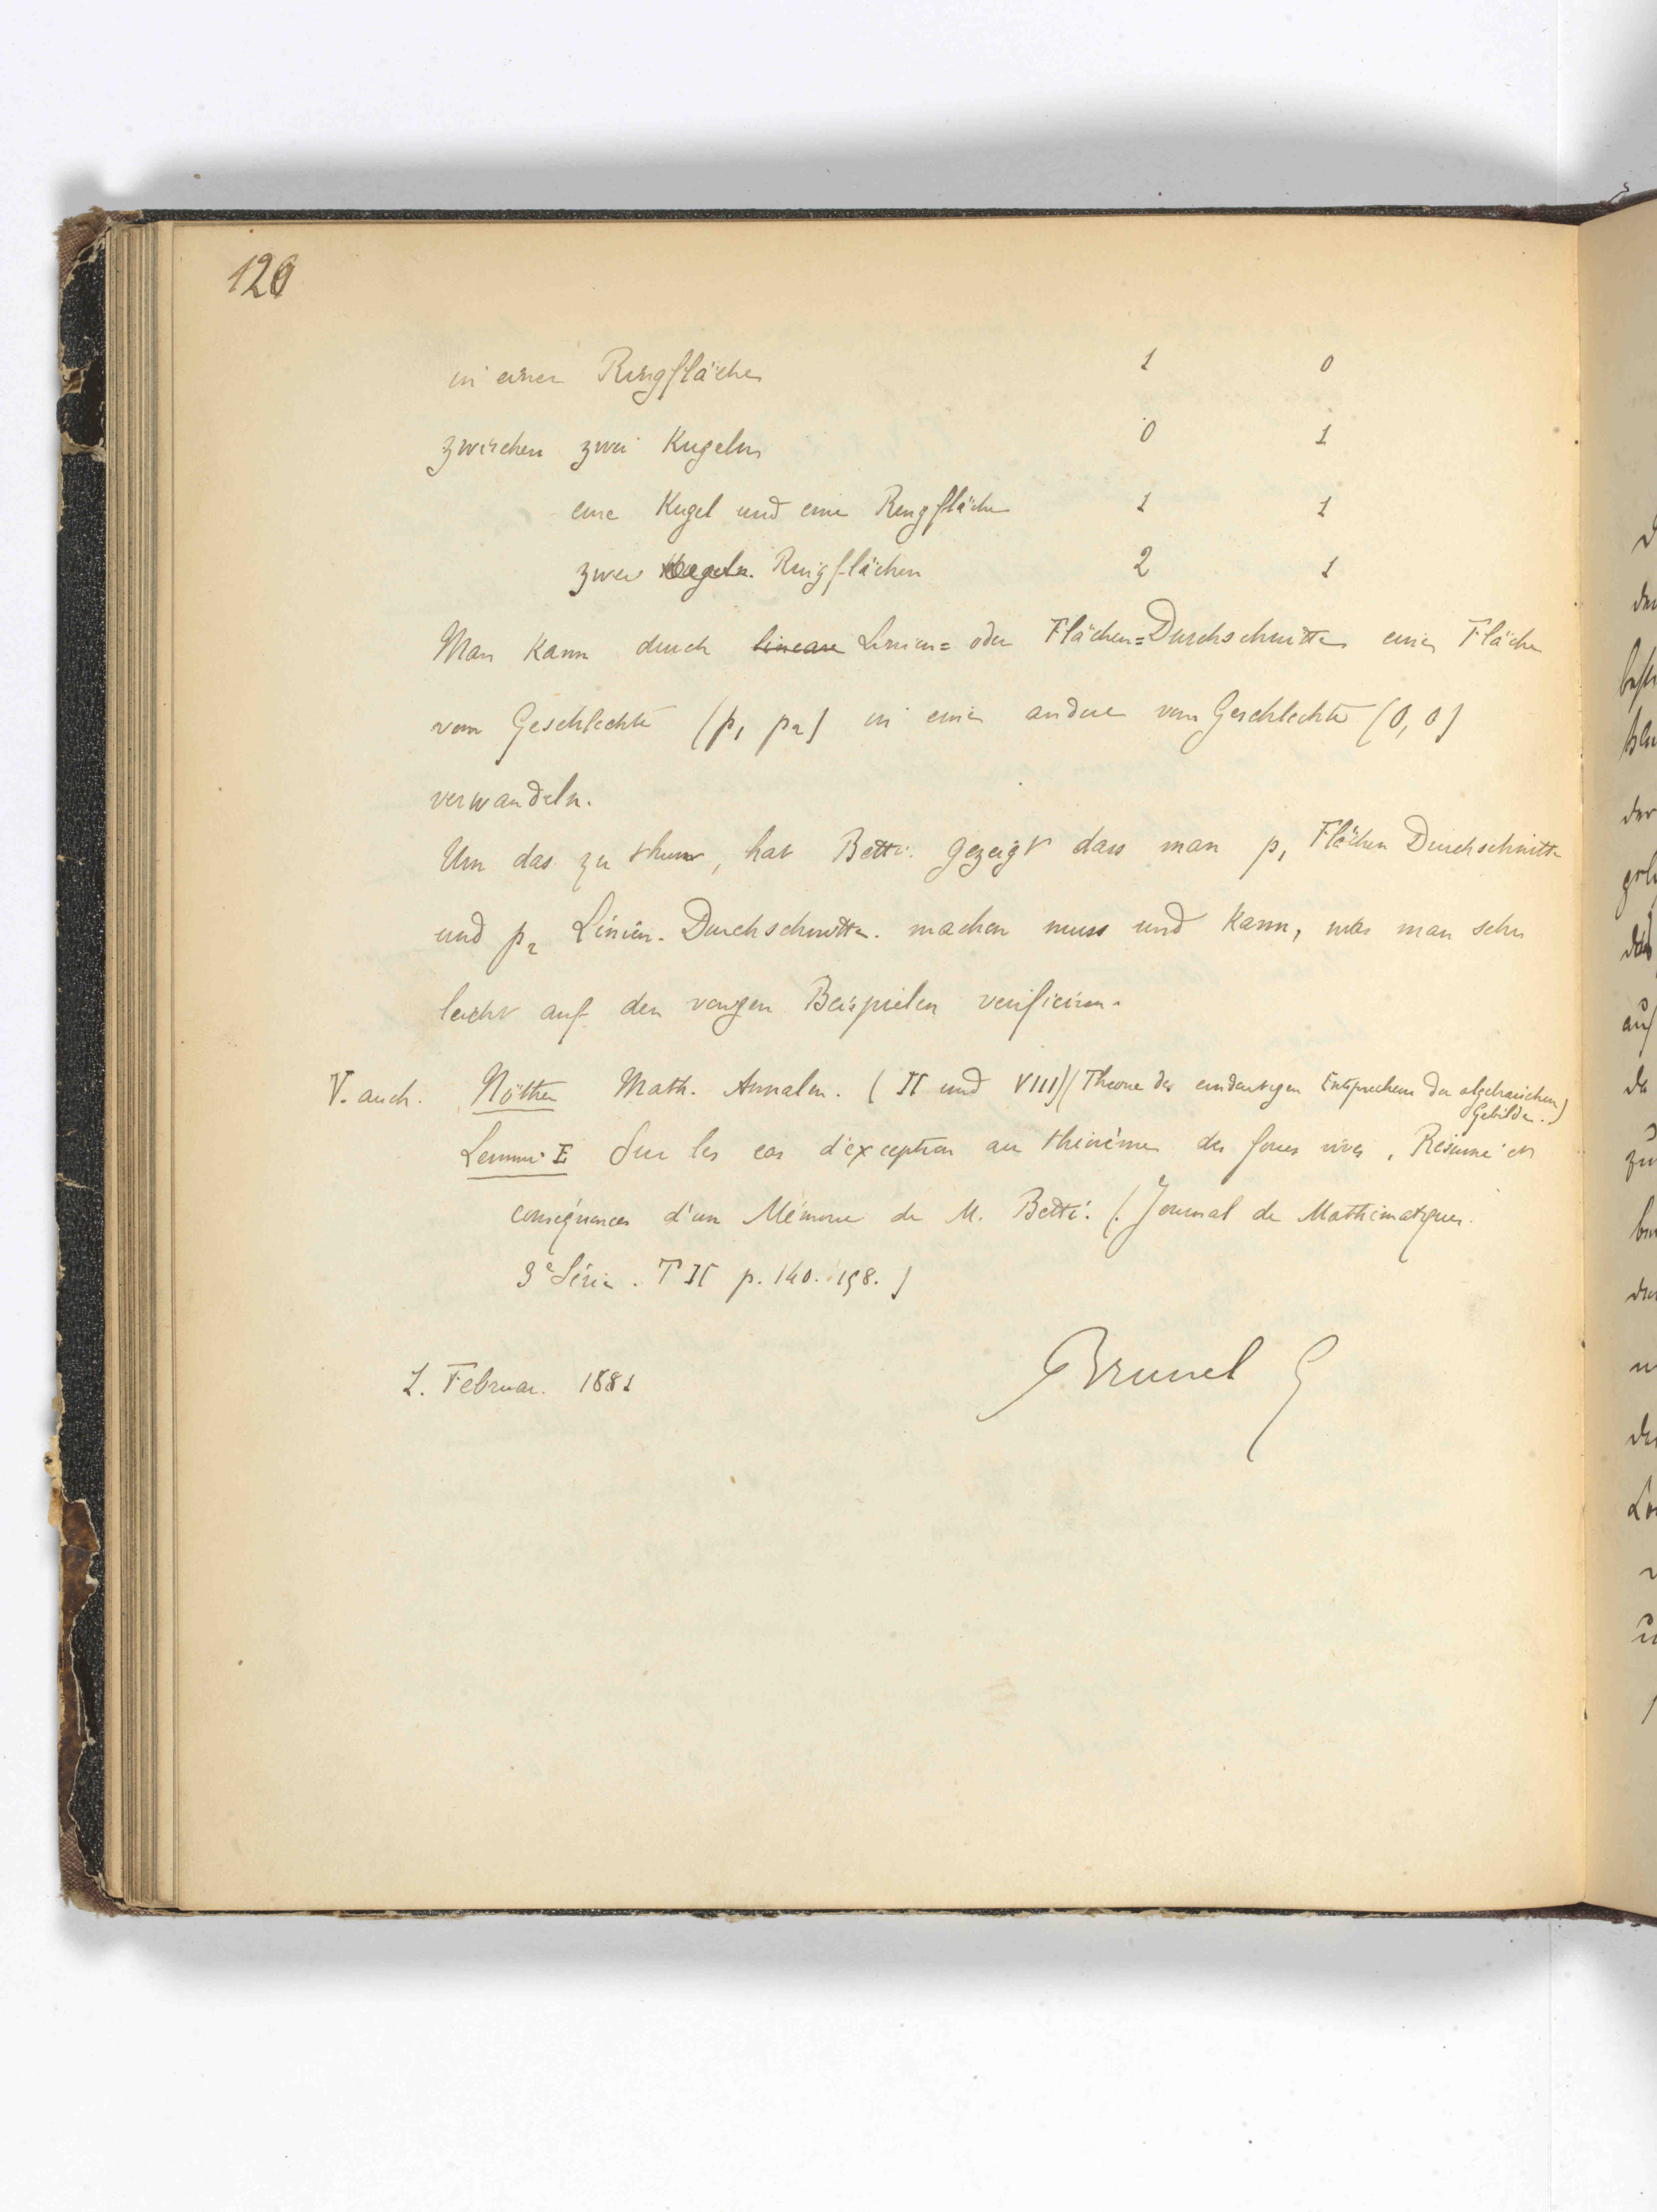 120
in einer Ringfläche 1 0
zwischen zwei Kugeln 0 1
eine Kugel und eine Ringfläche 1 1
zwei Kugeln. Ringflächen 2 1
Man kann durch lineare Linien= oder Flächen=Durchschnitte eine Fläche
vom Geschlechte (p1 p2) in eine andere vom Geschlechte (0, 0)
verwandeln.
Um das zu thun, hat Betti gezeigt dass man p1 Flächen Durchschnitte
und p2 Linien-Durchschnitte machen muss und kann, was man sehr
leicht auf den vorigen Beispielen verificiren.
V. auch. Nöther Math. Annalen. (II und VIII) (Theorie des eindeutigen Entsprechens der algebraischen
Gebilde.)
Sur les cas d'exception au théorème des forces vives, Résumé et
conséquences d'un Mémoire de M. Betti. (Journal de Mathématiques.
3e Série. T II p. 140. 158.)
1. Februar. 1881
Brunel G